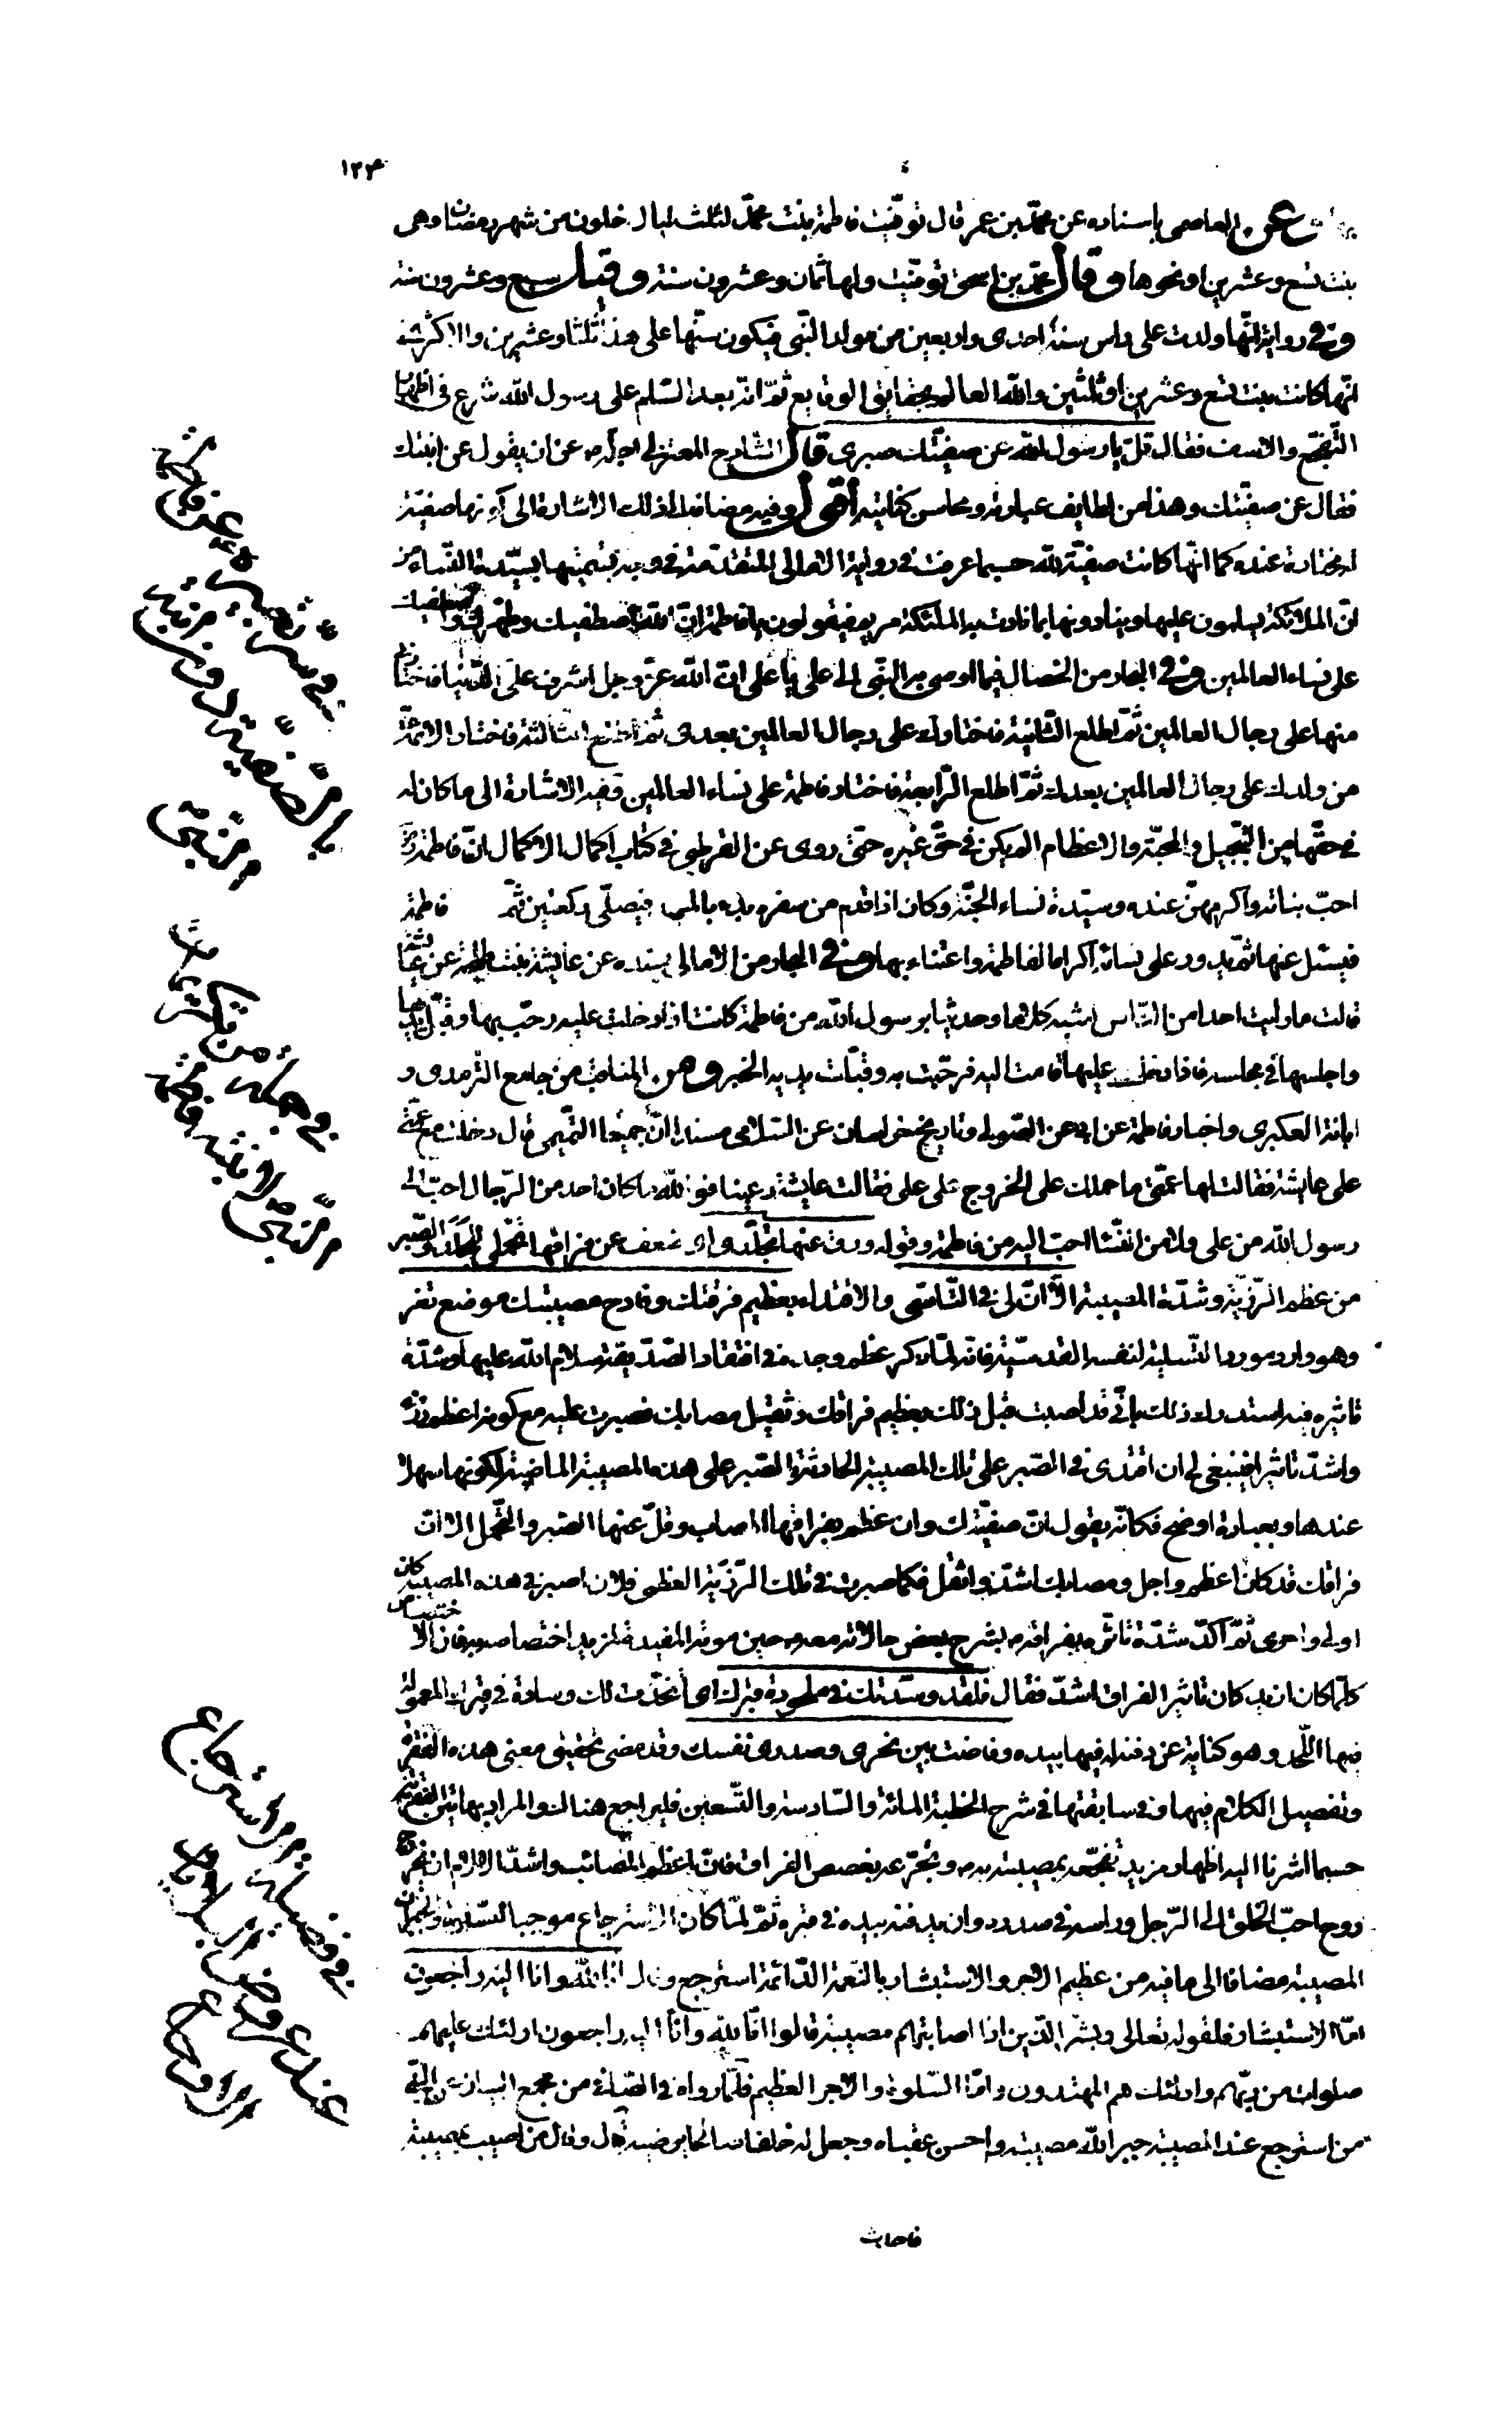 ١٢٣
عن العاصمى باسناده عن محمّد بن عمر قال توفّيت فاطمة بنت محمّد لثلث ليال خلون من شهر رمضان وهى
بنت تسع وعشرين او نحوها وقال محمّد بن اسحق توفّيت ولها ثمان وعشرون سنة وقيل سبع وعشرون سنة
وفى رواية انّها ولدت على راس سنة احدى واربعين من مولد النّبى فيكون سنّها على هذا ثلثا وعشرين والاكثر على
انّها كانت بنت تسع وعشرين او ثلثين والله العالم بحقايق الوقايع ثمّ انّه بعد السّلم على رسول الله شرع فى اظهار
التّفجّع والاسف فقال قلّ يا رسول الله عن صفيّتك صبرى قال الشارح المعتزلى اجلّه عن ان يقول عن ابنتك
فقال عن صفيّتك وهذا من لطايف عباراته ومحاسن كنايته اقول وفيه مضافا لذلك الاشارة الى كونها صفيّة
له مختارة عنده كما انّها كانت صفيّة لله حسبما عرفت فى رواية الامالى المتقدّمة فى وجه تسميتها بسيّدة النّساء من
انّ الملائكة يسلمون عليها وينادونها بما نادت به الملئكة مريم فيقولون يا فاطمة انّ الله اصطفيك وطهّرك واصطفيك
على نساء العالمين وفى البحار من الخصال فيما اوصى به النّبى الى على يا على انّ الله عزّ وجلّ اشرف على الدّنيا فاختارنى
منها على رجال العالمين ثمّ اطلع الثّانية فاختارك على رجال العالمين بعدى ثمّ اطلع الثالثة فاختار الائمّة
من ولدك على رجال العالمين بعدك ثمّ اطلع الرّابعة فاختار فاطمة على نساء العالمين وفيه الاشارة الى ما كان له
فى حقّها من التّبجيل والمحبّة والاعظام ما لم يكن فى حقّ غيره حتّى روى عن القرطبى فى كتاب اكمال الاكمال انّ فاطمة
احبّ بناته واكرمهنّ عنده وسيّدة نساء الجنّة وكان اذا قدم من سفره بدء بالمسجد فيصلّى ركعتين ثمّ فاطمة
فيسئل عنها ثمّ يدور على نسائه اكراما لفاطمة واعتناء بها وفى البحار من الامالى بسنده عن عايشة بنت طلحة عن عايشة
قالت ما رايت احدا من النّاس اشبه كلاما وحديثا برسول الله من فاطمة كانت اذا دخلت عليه رحّب بها وقبّل يديها
واجلسها فى مجلسه فاذا دخل عليها قامت اليه فرحّبت به وقبّلت يديه الخبر ومن المناقب من جامع الترمذى و
ابانة العكبرى واخبار فاطمة عن ابى على الصّولى وتاريخ خراسان عن السّلامى مسندا انّ جميعا التّيمى قال دخلت مع عمّتى
على عايشة فقالت لها عمّتى ما حملك على الخروج على على فقالت عايشة دعينا فو الله ما كان احد من الرّجال احبّ الى
رسول الله من على ولا من النّسا احبّ اليه من فاطمة وقوله ورقّ عنها تجلّدى اى ضعف عن فراقها تحمّلى للجلد والصّبر
من عظم الرّزيّة وشدّة المصيبة الا انّ لى فى التّاسّى والاقتداء بعظيم فرقتك وفادح مصيبتك موضع تعزّ
وهو وارد مورد التّسلية لنفسه القدسيّة فانّه لمّا ذكر عظم وجده فى افتقاد الصّديقة سلام الله عليها وشدّة
تاثيره فيه استدرك ذلك بانّى قد اصبت قبل ذلك بعظيم فراقك وثقيل مصابك فصبرت عليه مع كونه اعظم رزء
واشدّ تاثيرا فينبغى لى ان اقتدى فى الصّبر على تلك المصيبة الحادثة بالصّبر على هذه المصيبة الماضية لكونها سهلا
عندها وبعبارة اوضح فكانّه يقول انّ صفيّتك وان عظم بفراقها المصاب وقلّ عنها الصّبر والتّحمل الا انّ
فراقك قد كان اعظم واجل ومصابك اشدّ واثقل فكما صبرت فى تلك الرّزيّة العظمى فلان اصبر فى هذه المصيبة كان
اولى واحرى ثمّ اكّد شدّة تاثّره بفراقه بشرح بعض حالاته معه حين موته المفيدة لمزيد اختصاصه به فانّ الاختصاص
كلّما كان ازيد كان تاثير الفراق اشدّ فقال فلقد وسّدتك فى ملحودة قبرك اى اتّخذت لك وسادة فى قبرك المعمول
فيها اللّحد وهو كناية عن دفنه له فيها بيده وفاضت بين نحرى وصدرى نفسك وقد مضى تحقيق معنى هذه الفقرة
وتفصيل الكلام فيها وفى سابقتها فى شرح الخطبة المائة والسّادسة والتّسعين فليراجع هناك والمراد بهاتين الفقرتين
حسبما اشرنا اليه اظهار مزيد تفجّعه بمصيبته به وتجرّعه بغصص الفراق فانّ اعظم المصائب واشدّ الالام ان يخرج
روح احبّ الخلق الى الرّجل وراسه فى صدره وان يدفنه بيده فى قبره ثمّ لمّا كان الاسترجاع موجبا للسّلوة وجبران
المصيبة مضافا الى ما فيه من عظيم الاجر والاستبشار بالنّعمة الدّائمة استرجع وقال انّا لله وانا اليه راجعون
امّا الاستبشار فلقوله تعالى وبشّر الّذين اذا اصابتهم مصيبة قالوا انّا لله وانّا اليه راجعون اولئك عليهم
صلوات من ربّهم واولئك هم المهتدون وامّا السّلوة والاجر العظيم فلما رواه فى الصّافى من مجمع البيان عن النّبى
من استرجع عند المصيبة جبر الله مصيبته واحسن عقباه وجعل له خلفا صالحا يرضيه قال وقال من اصيب بمصيبة
فاحدث